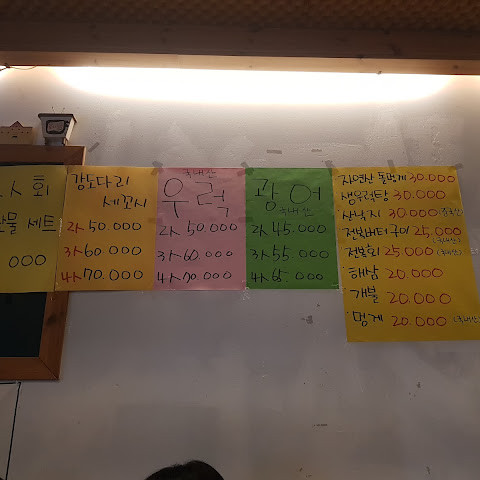 회
물 세트
000
강도다리
세꼬시
2人 50.000
3人 60.000
4人 70.000
국내산
우럭
2人 50.000
3人 60.000
4人 70.000
광어
국내산
2人 45.000
3人 55.000
4人 65.000
자연산 돌멍게 30.000
생우럭탕 30.000
산낙지 30.000 (국산)
전복버터구이 25.000
(국내산)
전복회 25.000 (국내산)
해삼 20.000
개불 20.000
멍게 20.000 (국내산